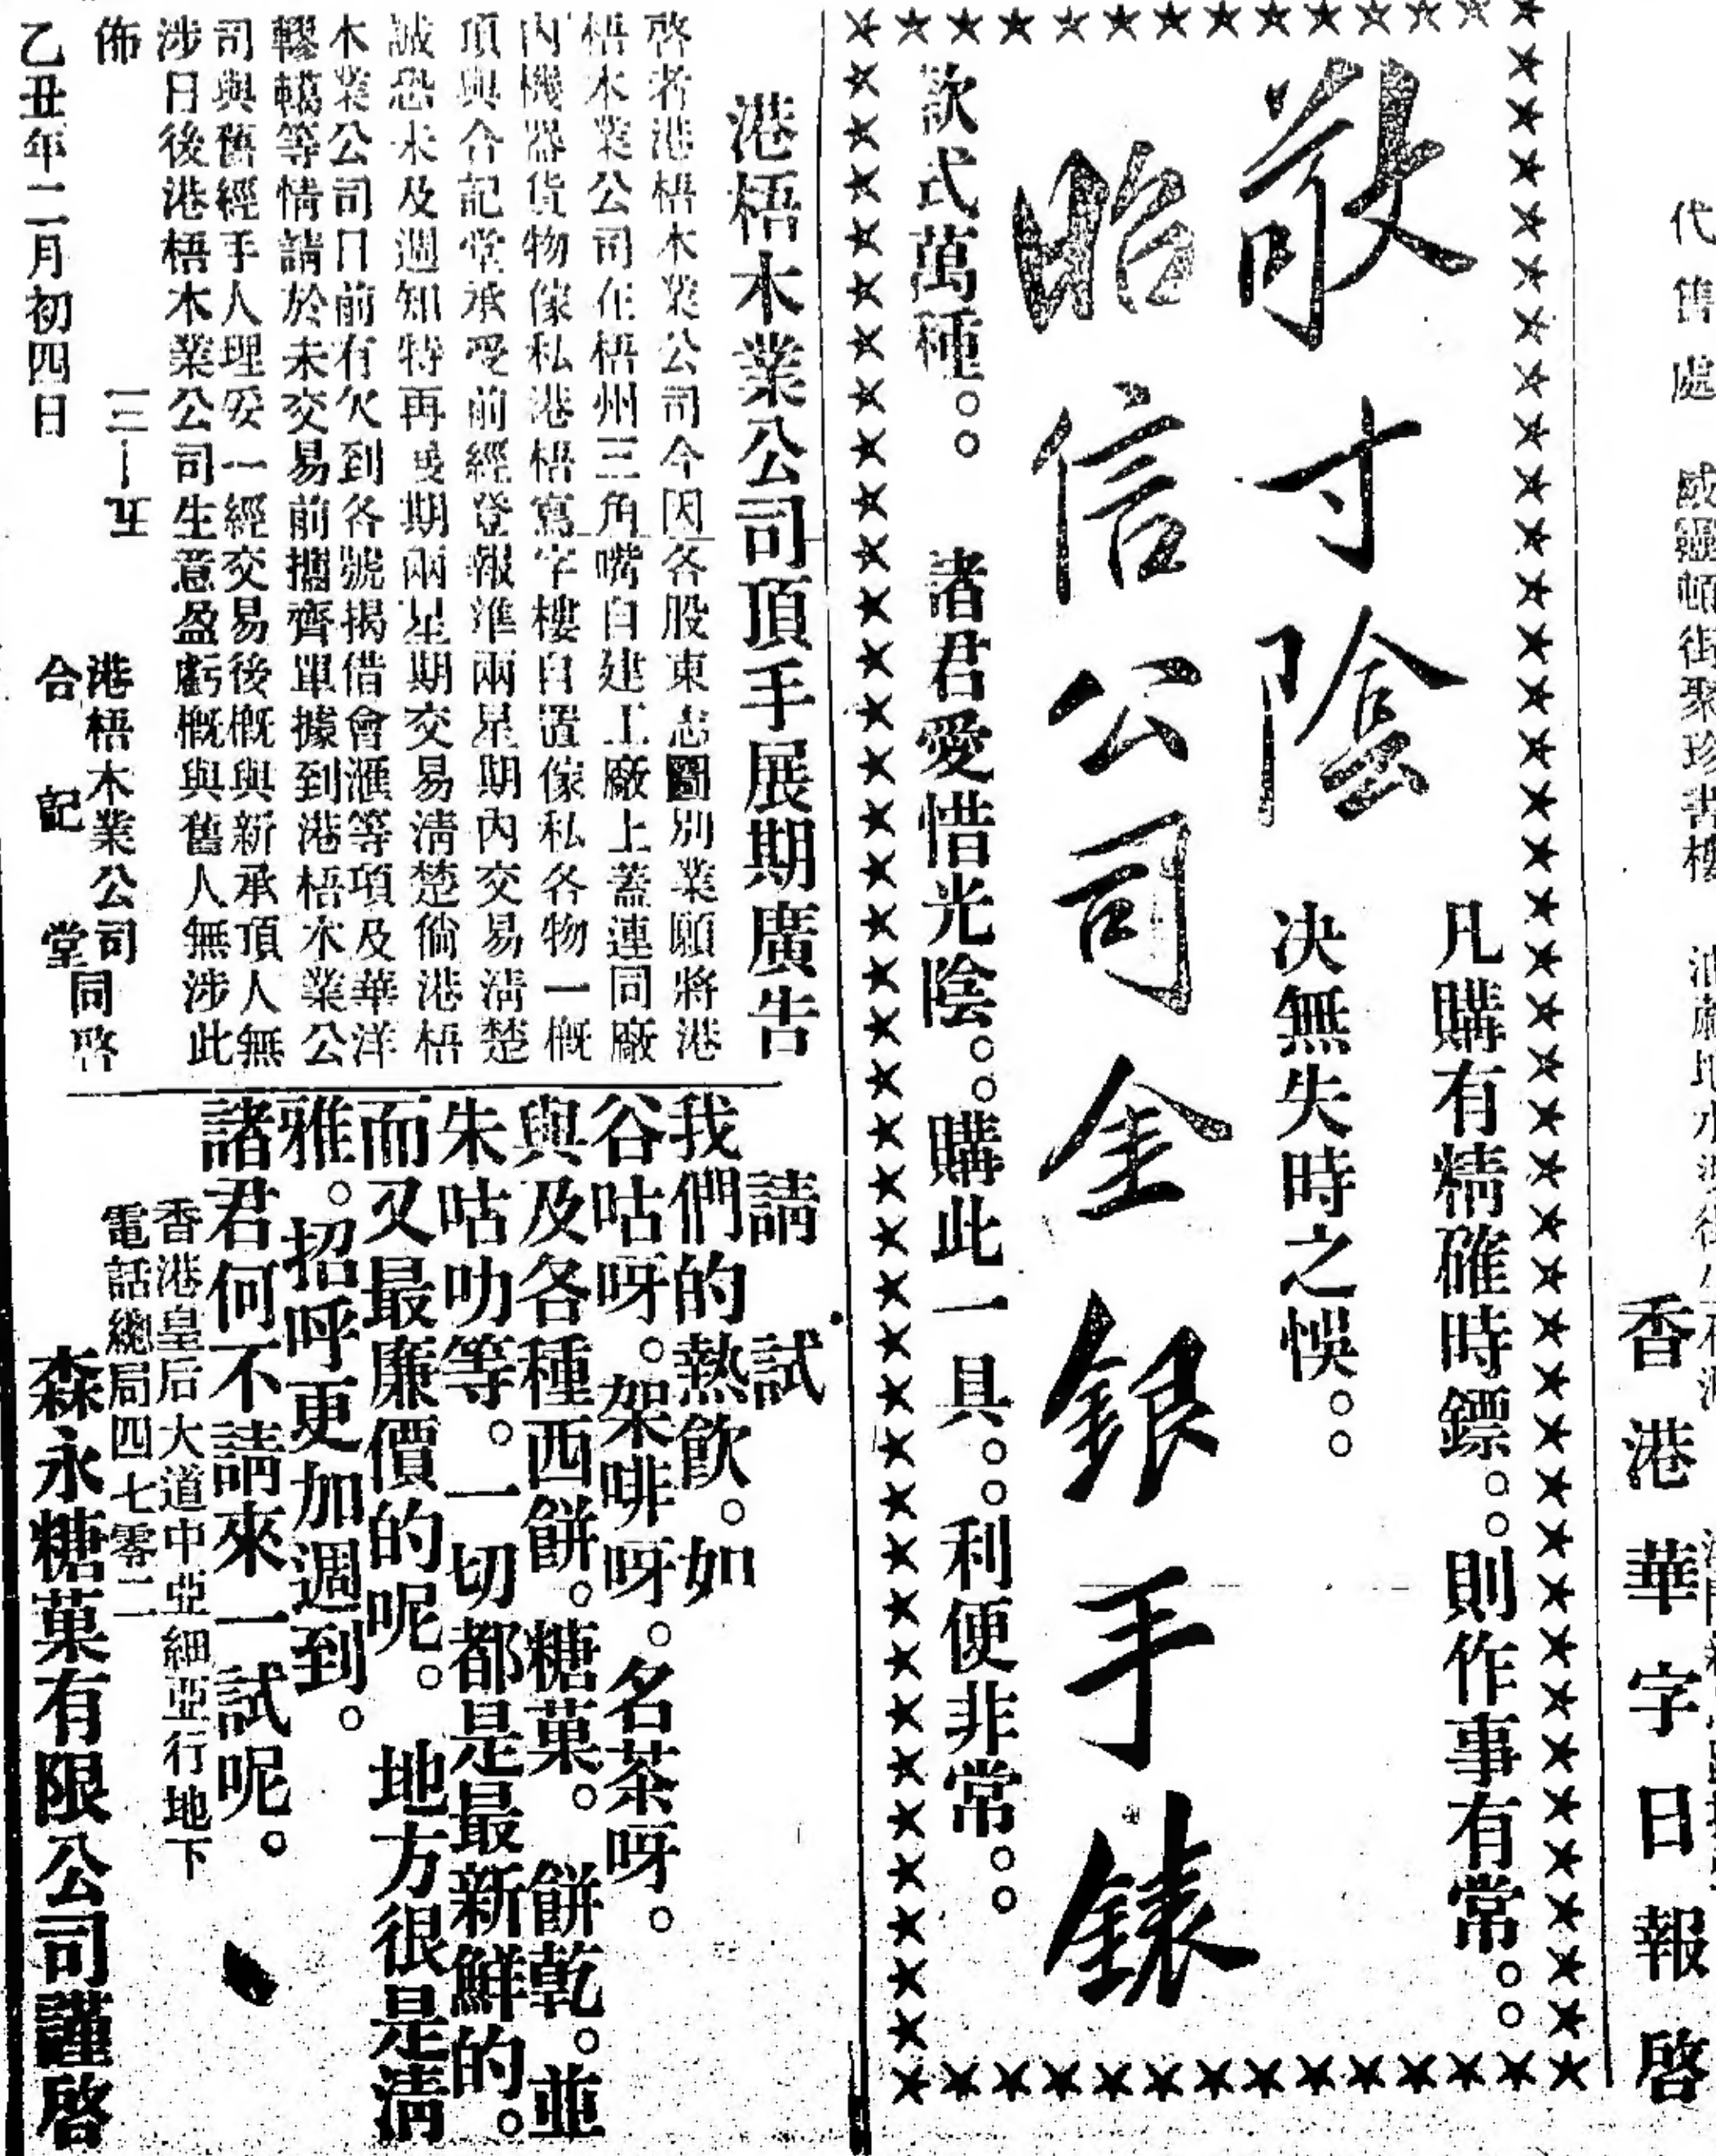 代售處
香港華字日報啓
凡購有精確時鏢。。則作事有常。。
决無失時之悞。。
敬寸陰
昭信公司金銀手錶
欵式萬種。。諸君愛惜光陰。。購此一具。。利便非常。。
港梧木業公司頂手展期廣告
啓者港梧木業公司今因各股東志圖別業願將港
梧木業公司在梧州三角嘴自建工廠上蓋連同廠
內機器貨物傢私港梧寫字樓自置傢私各物一概
頂與合記堂承受前經登報准兩星期內交易淸楚
誠恐未及週知特再展期兩星期交易淸楚倘港梧
木業公司日前有欠到各號揭借會滙等項及華洋
轇轕等情請於未交易前攜齊單據到港梧木業公
司與舊經手人理妥一經交易後概與新承頂人無
涉日後港梧木業公司生意盈虧概與舊人無涉此
佈 一三—五
港梧木業公司
合記堂
同啓
乙丑年二月初四日
請試
我們的熱飲。如
谷咕呀。架啡呀。名茶呀。
與及各種西餅。糖菓。餅乾。並
朱咕叻等。一切都是最新鮮的。
而又最廉價的呢。地方很是淸
雅。招呼更加週到。
諸君何不請來一試呢。
香港皇后大道中亞細亞行地下
電話總局四七零二
森永糖菓有限公司謹啓